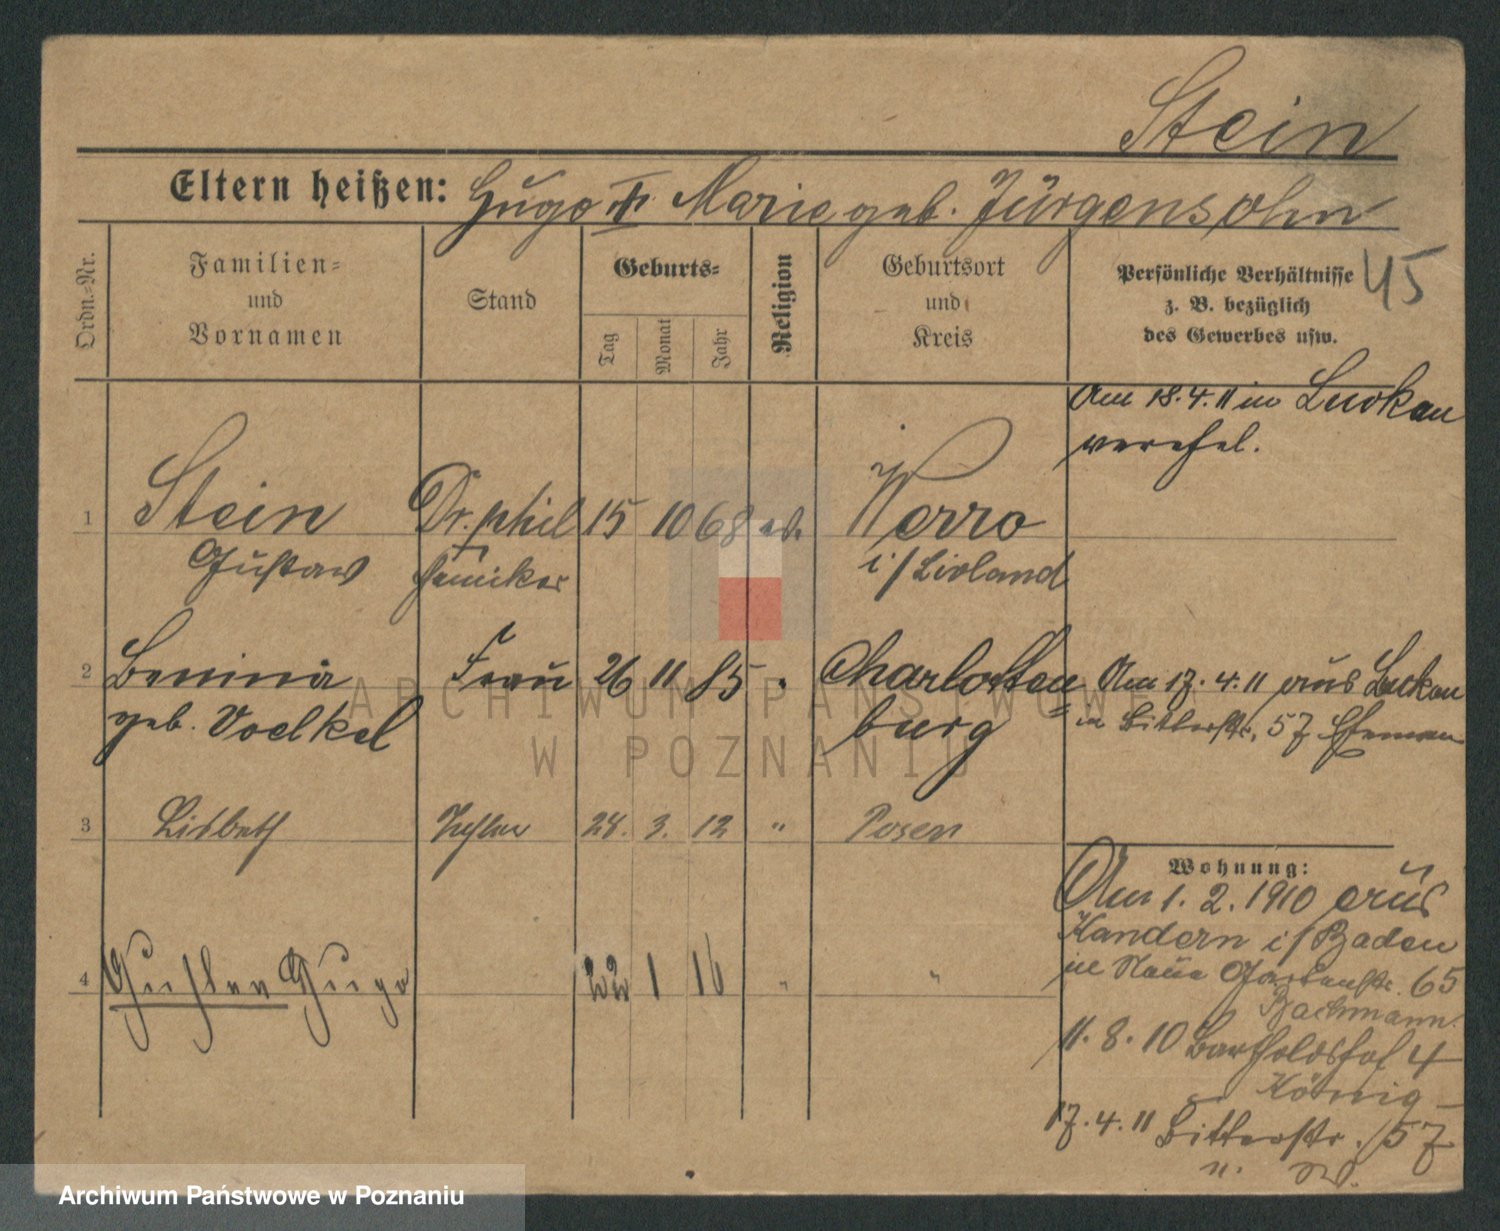 Stein
Eltern heißen: Hugo Marie geb. Jürgensohn
Ordn.=Nr.
Familien=
und
Vornamen
Stand
Geburts=
Tag
Monat
Jahr
Religion
Geburtsort
und
Kreis
Persönliche Verhältnisse
z. B. bezüglich
des Gewerbes usw.
45
Am 18.4.11 in Luckau
verehel.
1 Stein Dr. phil 15 10 68 ev. Werro
Gustav Chemiker i/Livland
2 Benina Frau 26 11 85 " Charlotten
geb. Voelkel burg
Am 17.4.11 aus Luckau
in Bitterstr. 57
3 Lisbeth Tochter 24. 3. 12 " Posen
4 Hugo 22 1 16 " "
Wohnung:
Am 1.2.1910 aus
Kandern i/Baden
in Neue Gartenstr. 65
Bachmann
11.8.10 Bartholdshof 4
König
17.4.11 Bitterstr. 57
ARCHIWUM PAŃSTWOWE
W POZNANIU
Archiwum Państwowe w Poznaniu